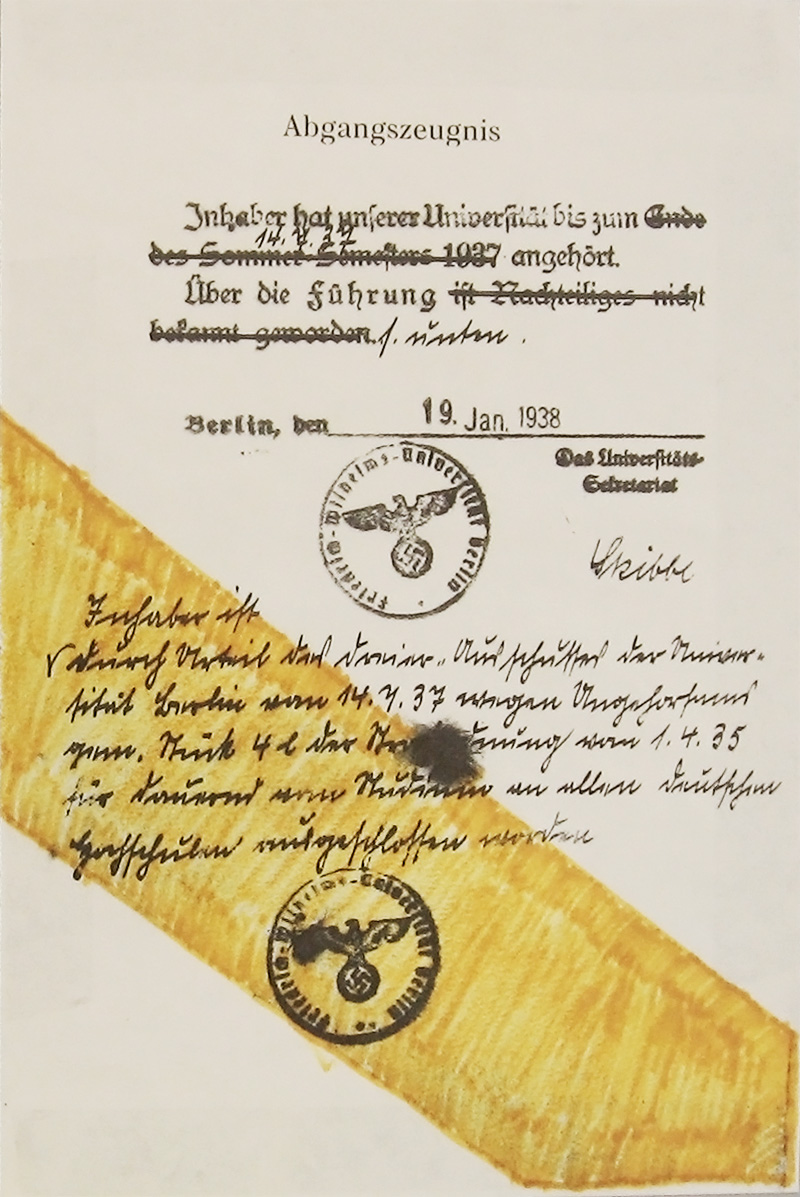 Abgangszeugnis
Inhaber hat unserer Universität bis zum Ende
14.7.37
des Sommer-Semesters 1937 angehört.
Über die Führung ist Nachteiliges nicht
bekannt geworden. s. unten.
Berlin, den 19. Jan. 1938
Das Universitäts-
Sekretariat
Friedrich-Wilhelms-Universität Berlin
Skibbe
Inhaber ist
durch Urteil des Dreier-Ausschusses der Univer-
sität Berlin vom 14.7.37 wegen Ungehorsams
gem. Stück 4 der vom 1.4.35
für dauernd vom Studium an allen deutschen
Hochschulen ausgeschlossen worden
Friedrich-Wilhelms-Universität Berlin